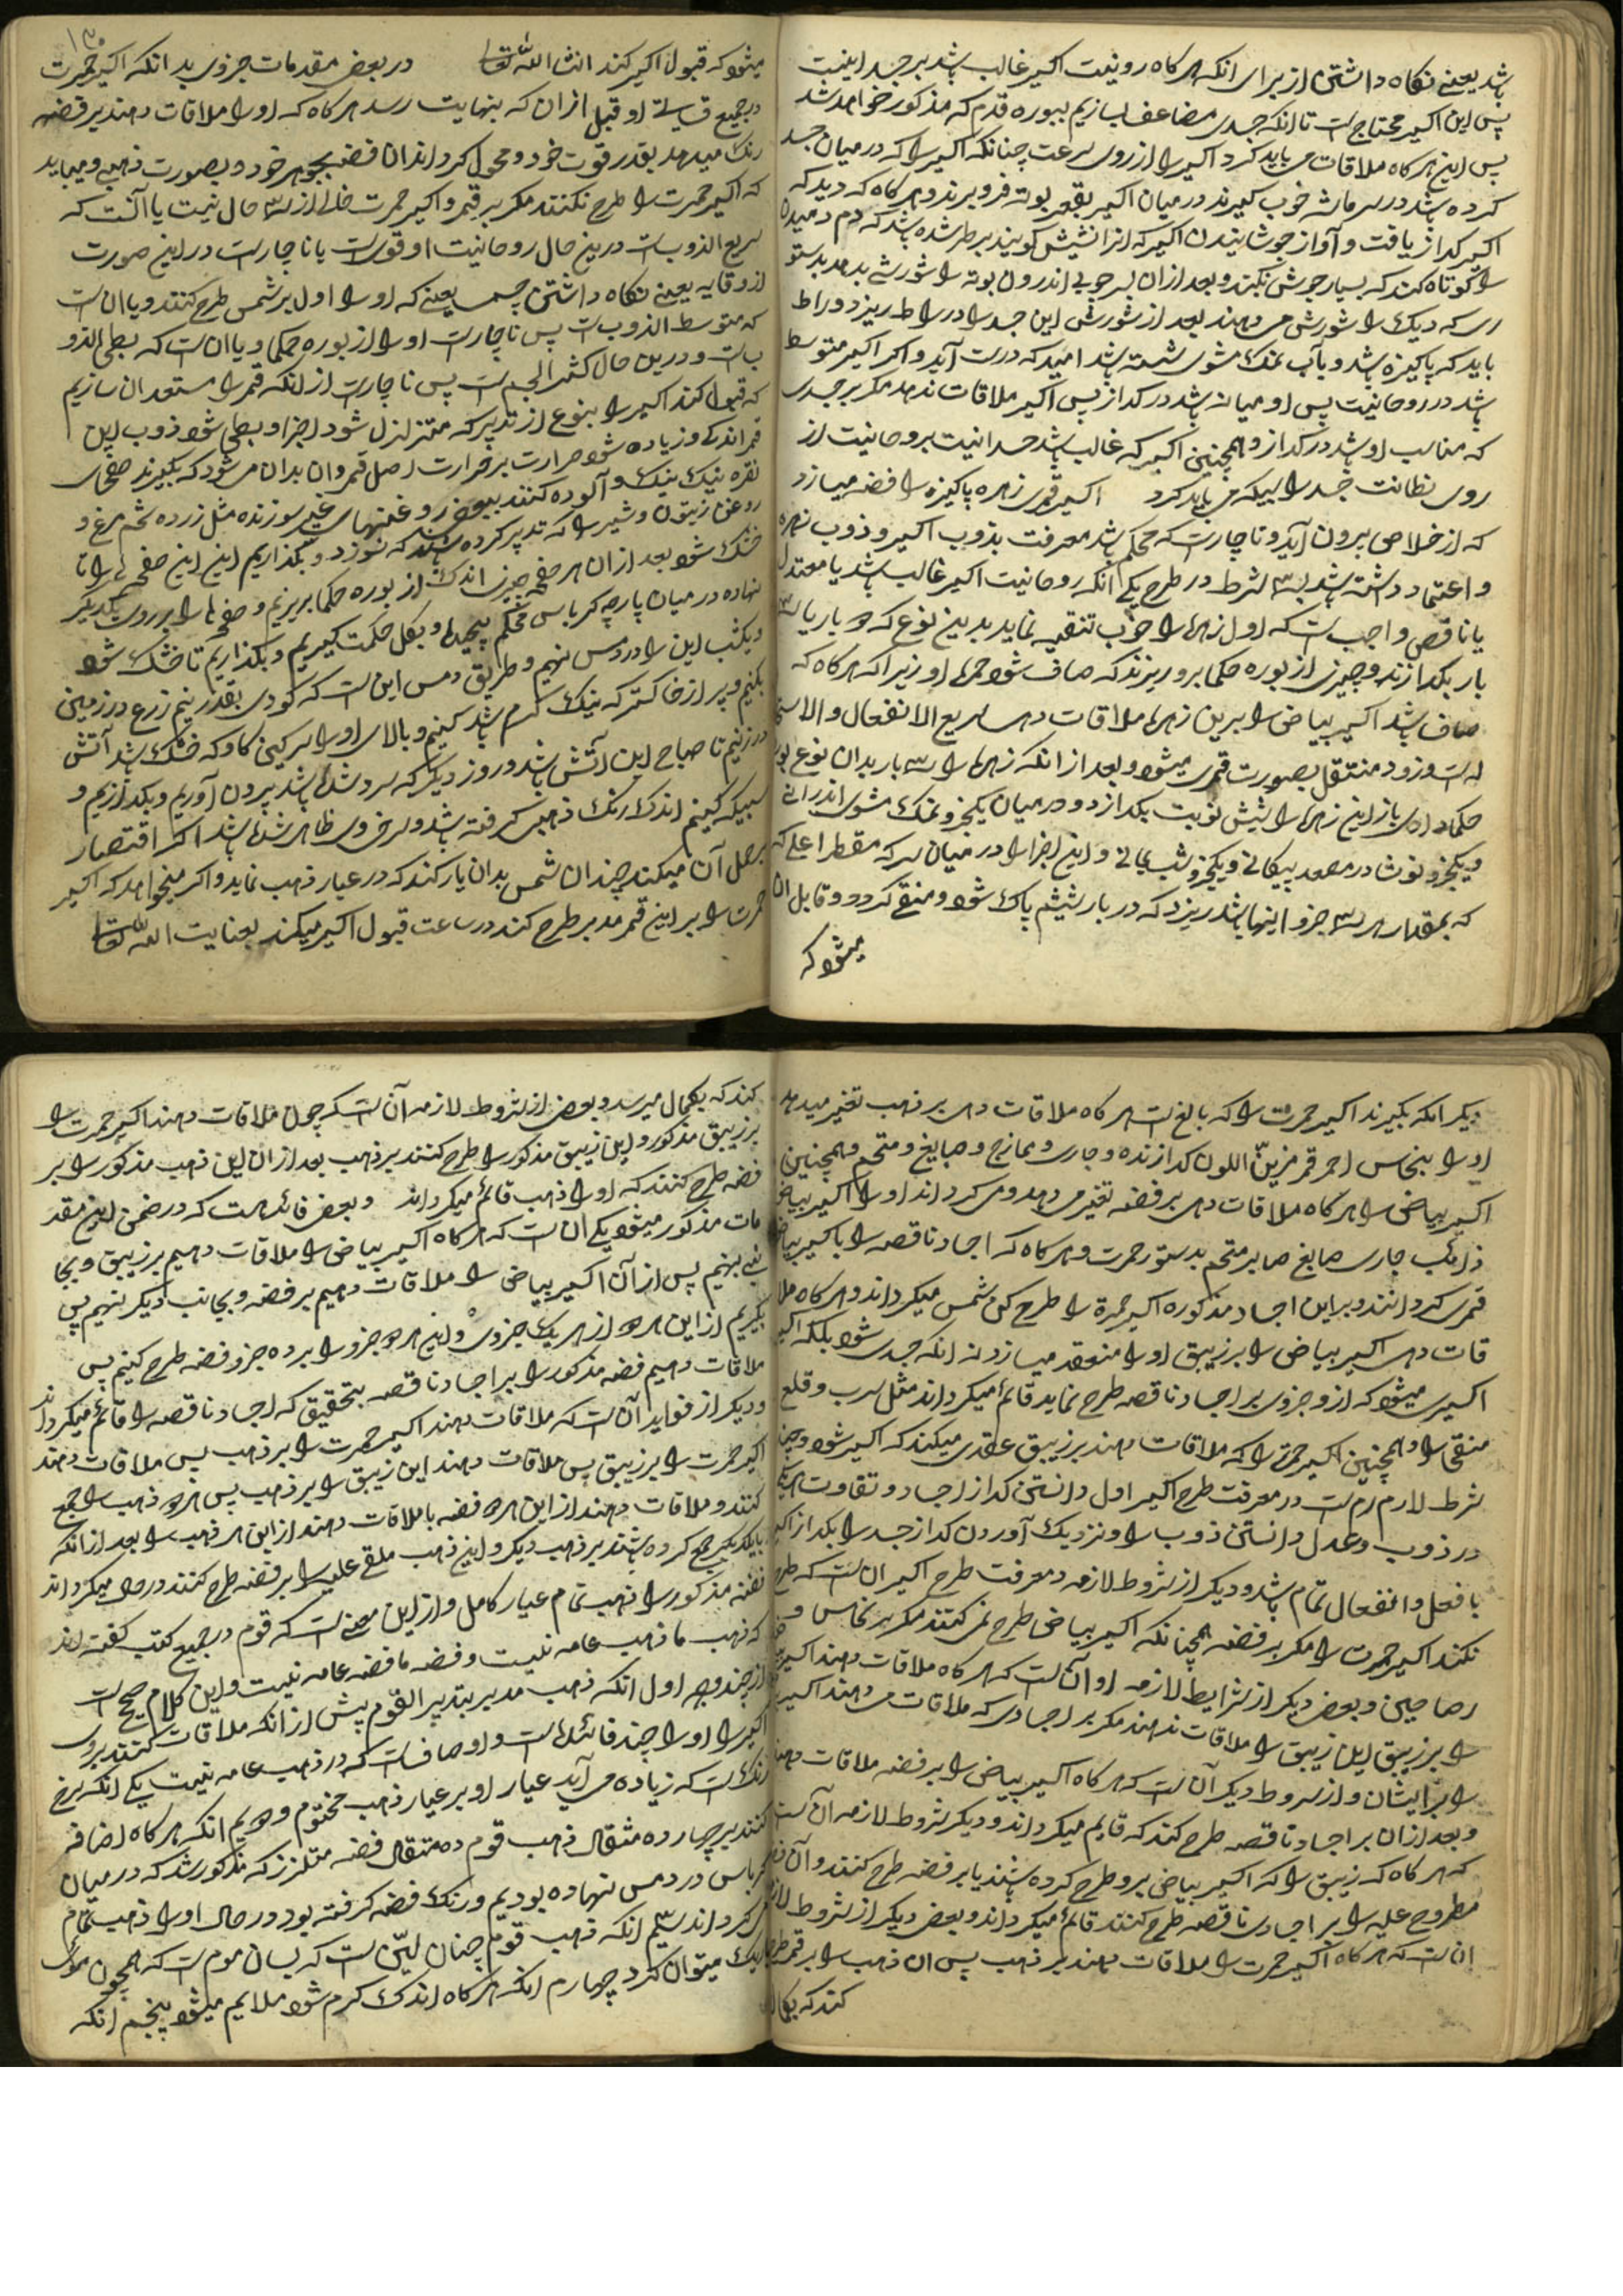 شد یعنی نکاه داشتن از برای انکه هرکاه رونیت اکسیر غالب باشد بر جسد اینیت
پس این اکسیر محتاج است تا انکه جسدی مضاعف بسازیم ببوره قدم که مذکور خواهد شد
پس این هرکاه ملاقات می باید کرد اکسیر را از روی سرعت چنانکه اکسیر را که در میان جسد
کرده باشد در سر ماشه خوب کیرند در میان اکسیر بقعر بوته فرو برند و هرکاه که دید که
اکسیر کداز یافت و آواز جوشانیدن اکسیر که انرا نشیش کویند بر طرف شده باشد که دم دمیدن
را کوتاه کند که بسیار جوشی نکند و بعد ازان بسر چوبی اندرون بوته را شورشی بدهد بدستو
ری که دیک را شورش می دهند بعد از شورش این جسد را در راط ریزد و راط
باید که پاکیزه باشد و بآب نمک مشوی شسته باشد امید که درست آید و اکر اکسیر متوسط
باشد در روحانیت پس او میانه باشد در کداز پس اکسیر ملاقات ندهد مکر بر جسدی
که مناسب او باشد در کداز و همچنین اکسیر که غالب باشد جسدانیت بروحانیت از
روی نظانت جسد را سبیکه می باید کرد اکسیر قمری زهره پاکیزه را فضه میسازد
که از خلاص بیرون آید و ناچار است که محکم باشد معرفت بذوب اکسیر و ذوب زهره
و اعتماد داشته باشد بسه شرط در طرح یکی انکه روحانیت اکسیر غالب باشد یا معتدل
یا ناقص واجب است که اول زهره را خوب تنقیه نماید بدین نوع که دو بار یا سه
بار بکدازند و چیزی از بوره حکما برو ریزند که صاف شود جسم او زیرا که هرکاه که
صاف باشد اکسیر بیاض را برین زهره ملاقات دهی سریع الانفعال والاستحا
له است و زود منتقل بصورت قمری میشود و بعد از انکه زهره را سه بار بدان نوع بوره
حکما دادی باز این زهره را شش نوبت بکدازد و در میان یکجزو نمک مشوی اندرانی
و یکجزو نوشادر مصعد پیکانی و یکجزو شب یمانی و این اجزا را در میان سرکه مقطر اعلی که
که بمقدار هر سه جزو اینها باشد ریزد که در بار ششم پاک شود و منقی کردد و قابل ان
میشود که
۱۳۰
میشود که قبول اکسیر کند انشا الله تعالی در بعض مقدمات جزوی بدانکه اکسیر حمرت
در جمیع قیاسات او قبل ازان که بنهایت رسد هرکاه که او را ملاقات دهند بر فضه
رنک میدهد بقدر قوت خود و محول کرداند ان فضه بجوهر خود و بصورت ذهبی و میباید
که اکسیر حمرت را طرح نکنند مکر بر قمر و اکسیر حمرت خالی از سه حال نیست یا آنست که
سریع الذوبست درین حال روحانیت او قوی است یا ناچار است در این صورت
از وقایه یعنی نکاه داشتن جسم یعنی که او را اول بر شمس طرح کنند و یا ان است
که متوسط الذوبست پس ناچار است او را از بوره حکما و یا ان است که بطی الذو
بست و درین حال کثیر الجسم است پس ناچار است از انکه قمر را مستعد ان سازیم
که قبول کند اکسیر را بنوع از تدبیر که متزلزل شود اجزا و بطی شود ذوب این
قمر اندکی و زیاده شود حرارت بر حرارت اصل قمر و ان بدان می شود که بکیرند صفحهای
نقره نیک نیک و آلوده کنند ببعض روغنهای غیر سوزنده مثل زرده تخم مرغ و
روغن زیتون و شیر را که تدبیر کرده باشند که نسوزد و بکذاریم این این صفحها را تا
خشک شود بعد ازان هر صفحه چیزی اندک از بوره حکما بریزیم و صفحها را بر روی یکدیکر
نهاده در میان پارچه کرباس محکم پیچیم و بکل حکمت کیریم و بکذاریم تا خشک شود
و یکشب این را در دمس نهیم و طریق دمس این است که کودی بقدر نیم زرع در زمینی
بکنیم و پر از خاکستر که نیک کرم باشد کنیم و بالای او را سرکین کاو که خشک باشد آتش
در زنیم تا صباح این آتش باشد و روز دیکر که سرد شده باشد بیرون آوریم و بکدازیم و
سبیکه کنیم اندک رنک ذهبی کرفته باشد و سرخی ظاهر شده باشد اکر اقتصار
بر حل آن میکند چندان شمس بدان یار کند که در عیار ذهب نماید و اکر میخواهد که اکسیر
حمرت را بر این قمر مدبر طرح کند در ساعت قبول اکسیر میکند بعنایت الله تعالی
دیکر انکه بکیرند اکسیر حمرت را که بالغ است هرکاه ملاقات دهی بر ذهب تغیر میدهد
او را بنحاس احمر قمر مزین اللون کدازنده و جاری و ممازج و صابغ و متحد و همچنین
اکسیر بیاض را هرکاه ملاقات دهی بر فضه تغیر می دهد و می کرداند او را اکسیر بیاض
ذائب جاری صابغ صابر متحد بدستور حمرت و هرکاه که اجساد ناقصه را باکسیر بیاض
قمری کردانند و بر این اجساد مذکوره اکسیر حمرة را طرح کنی شمس میکرداند و هرکاه ملا
قات دهی اکسیر بیاض را بر زیبق او را منعقد میسازد نه انکه جسدی شود بلکه اکسیر
اکسیری میشود که از و جزوی بر اجساد ناقصه طرح نماید قائم میکرداند مثل سرب و قلع
منقی را و همچنین اکسیر حمرتی را که ملاقات دهند بر زیبق عقدی میکند که اکسیر شود و چند
شرط لازم است در معرفت طرح اکسیر اول دانستن کداز اجساد و تفاوت هریک
در ذوب و عدل دانستن ذوب را و نزدیک آوردن کداز جسد را بکداز اکسیر
با فعل و انفعال تمام باشد و دیکر از شروط لازمه در معرفت طرح اکسیر ان است که طرح
نکنند اکسیر حمرت را مکر بر فضه همچنانکه اکسیر بیاض طرح نمی کنند مکر بر نحاس و
رصاصین و بعض دیکر از شرایط لازمه او آن است که هرکاه ملاقات دهند اکسیر
را بر زیبق این زیبق را ملاقات ندهند مکر بر اجسادی که ملاقات می دهند اکسیر
را بر ایشان و از شروط دیکر آن است که هرکاه اکسیر بیاض را بر فضه ملاقات دهند
و بعد ازان بر اجساد ناقصه طرح کنند که قایم میکرداند و دیکر شروط لازمه آن است
که هرکاه که زیبق را که اکسیر بیاض برو طرح کرده باشند یا بر فضه طرح کنند و آن فضه
مطروح علیه را بر اجسادی ناقصه طرح کنند قائم میکرداند و بعض دیکر از شروط لازمه
ان است که هرکاه اکسیر حمرت را ملاقات دهند بر ذهب پس ان ذهب را بر قمر طرح
کنند که بکمال
کنند که بکمال میرسد و بعض از شروط لازمه آن است که چون ملاقات دهند اکسیر حمرت را
بر زیبق مذکور و این زیبق مذکور را طرح کنند بر ذهب بعد ازان این ذهب مذکور را بر
فضه طرح کنند که او را ذهب قائم میکرداند و بعض فائده است که در ضمن این مقد
مات مذکور میشود یکی ان است که هرکاه اکسیر بیاض را ملاقات دهیم بر زیبق و بجا
نبی بنهیم پس از آن اکسیر بیاض را ملاقات دهیم بر فضه و بجانب دیکر بنهیم پس
بکیریم از این هر دو از هریک جزوی و این هر دو جزو را بر ده جزو فضه طرح کنیم پس
ملاقات دهیم فضه مذکور را بر اجساد ناقصه بتحقیق که اجساد ناقصه را قائم میکرداند
و دیکر از فواید آن است که ملاقات دهند اکسیر حمرت را بر ذهب پس ملاقات دهند
اکسیر حمرت را بر زیبق پس ملاقات دهند این زیبق را بر ذهب پس هر دو ذهب را جمع
کنند و ملاقات دهند از این هر دو فضه با ملاقات دهند از این هر ذهب را بعد از انکه
بایکدیکر جمع کرده باشند بر ذهب دیکر و این ذهب ملقی علیه را بر فضه طرح کنند در حال میکرداند
فضه مذکور را ذهب تمام عیار کامل و از این معنی است که قوم در جمیع کتب کفته اند
که ذهب ما ذهب عامه نیست و فضه ما فضه عامه نیست و این کلام صحیح است
از چند وجه اول انکه ذهب مدبر بتدبیر القوم پیش از انکه ملاقات کنند بروی
اکسیر را او را چند فائده است و اوصافست که در ذهب عامه نیست یکی انکه سرخ
رنک است که زیاده می آید عیار او بر عیار ذهب مختوم دویم انکه هرکاه اضافه
کنند بر چهارده مثقال ذهب قوم ده مثقال فضه متلزز که مذکور شد که در میان
کرباس در دمس نهاده بودیم و رنک فضه کرفته بود در حال او را ذهب تمام
می کرداند سیم انکه ذهب قوم چنان لین است که بسان موم است که همچون موم
باریک میتوان کرد چهارم انکه هرکاه اندک کرم شود ملایم میشود پنجم انکه